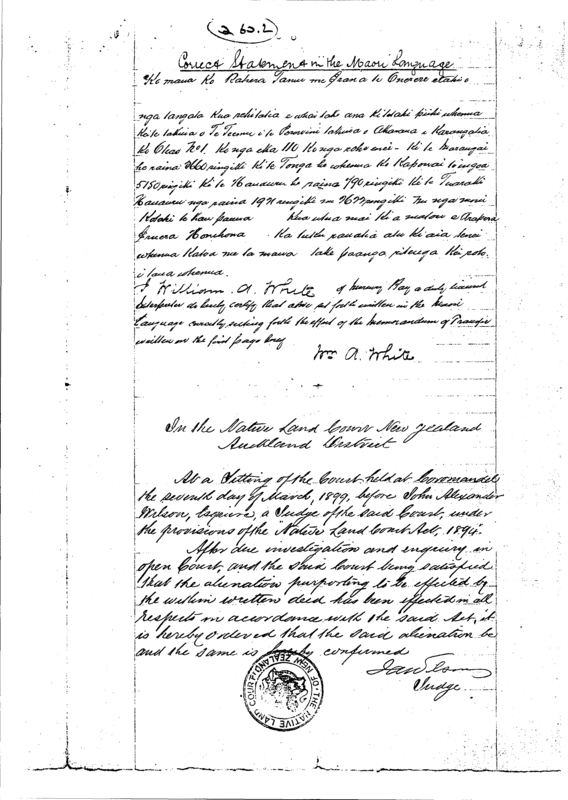 (2 60.2)
Correct Statement in the Maori Language
Ko maua Ko Rahera Tanui me Erana te Onerere etahi o
nga tangata Kua rehitatia e whai take ana Ki tetahi pihi whenua
Kei te takiwa o Te Teemu i te Porowini takiwa o Akarana e Karangatia
Ko Okao No 1. Ko nga eka 110 Ko nga rohe enei - Ki te Marangai
he raina ringiki Ki te Tonga ko whenua Ko Kapowai te ingoa
5150 ringiki Ki te Hauauru he raina 790 ringiki Ki te Tuaraki
Hauauru nga raina 1971 ringiki me 1677 ringiki Mo nga moni
Kotahi te Kau pauna Kua utua mai Ki a matou e
Hanihona Ka tukua rauatia atu Ki aia tenei
whenua Katoa me ta maua take paanga ritenga Kei roto
i taua whenua.
I William A. White of Mercury Bay a duly licensed
Interpreter do hereby certify that above set forth written in the Maori
Language correctly setting forth the effect of the Memorandum of Transfer
written on the first page hereof
Wm A. White
In the Native Land Court New Zealand
Auckland District
At a Sitting of the Court held at Coromandel
the seventh day of March, 1899, before John Alexander
Wilson, Esquire, a Judge of the said Court, under
the provisions of the "Native Land Court Act, 1894."
After due investigation and enquiry in
open Court, and the said Court being satisfied
that the alienation purporting to be effected by
the within written deed has been effected in all
respects in accordance with the said Act, it
is hereby ordered that the said alienation be
and the same is hereby confirmed
JA Wilson
Judge.
THE NATIVE LAND COURT OF NEW ZEALAND